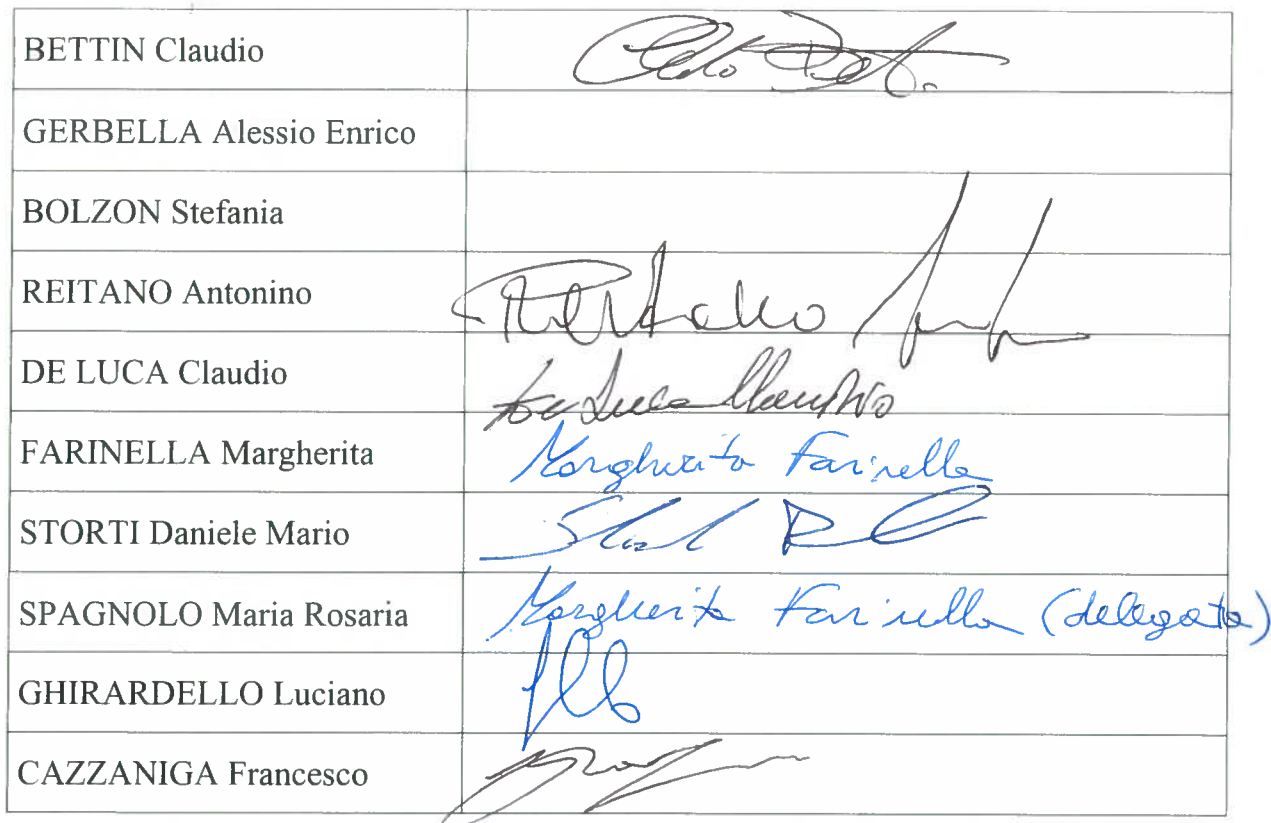 BETTIN Claudio
GERBELLA Alessio Enrico
BOLZON Stefania
REITANO Antonino Reitano
DE LUCA Claudio De Luca Claudio
FARINELLA Margherita Margherita Farinella
STORTI Daniele Mario
SPAGNOLO Maria Rosaria Margherita Farinella (delegata)
GHIRARDELLO Luciano
CAZZANIGA Francesco